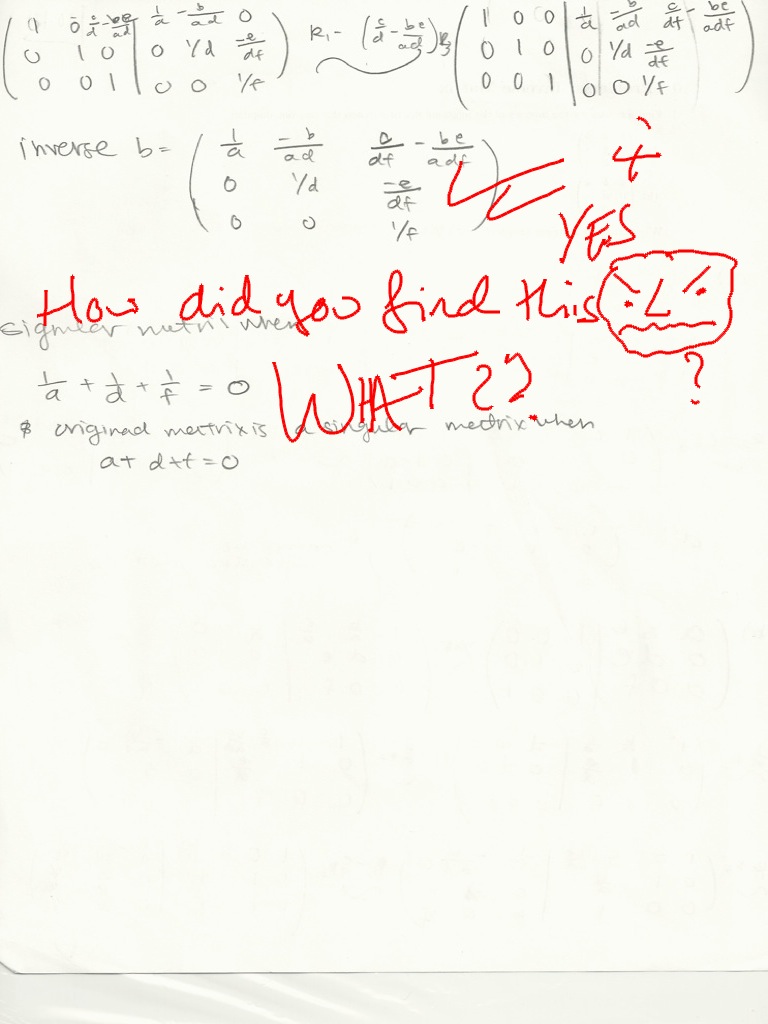 1 0 c/d - be/ad | 1/a -b/ad 0
0 1 0 | 0 1/d -e/df
0 0 1 | 0 0 1/f
R₁ - (c/d - be/ad)R₃
1 0 0 | 1/a -b/ad c/df - be/adf
0 1 0 | 0 1/d -e/df
0 0 1 | 0 0 1/f
inverse b =
1/a -b/ad c/df - be/adf
0 1/d -e/df
0 0 1/f
4
YES
How did you find this
?
matrix when
WHAT??
1/a + 1/d + 1/f = 0
matrix is a singular matrix when
a + d + f = 0